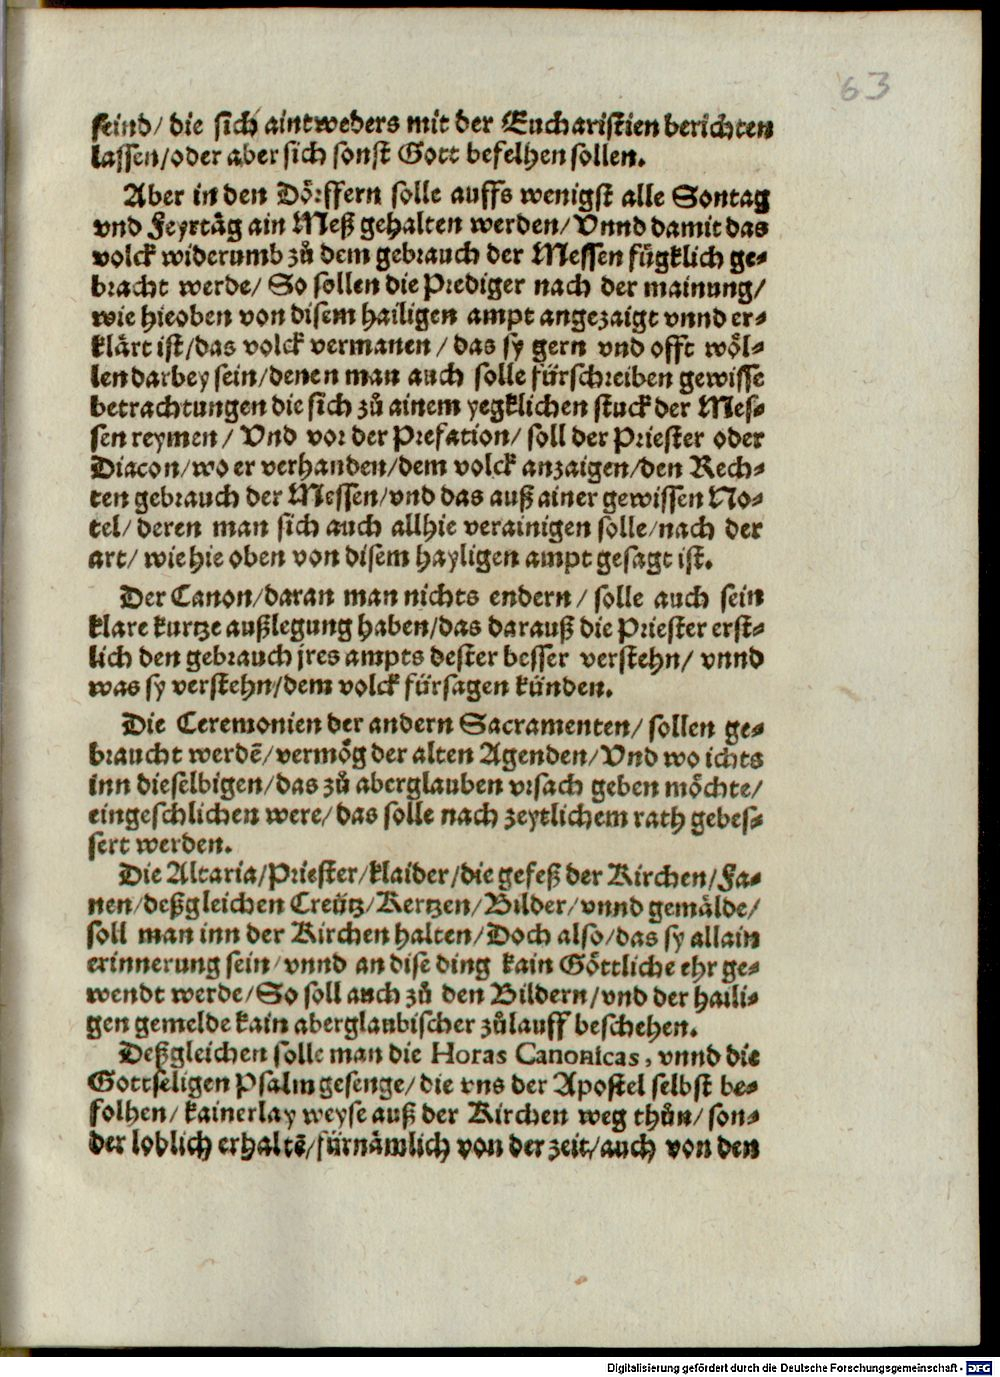 63
seind/ die sich aintweders mit der Eucharistien berichten
lassen/oder aber sich sonst Gott befelhen sollen.
Aber in den Dörffern solle auffs wenigst alle Sontag
vnd Feyrtäg ain Meß gehalten werden/ Vnnd damit das
volck widerumb zů dem gebrauch der Messen fügklich ge⸗
bracht werde/ So sollen die Prediger nach der mainung/
wie hieoben von disem hailigen ampt angezaigt vnnd er⸗
klärt ist/das volck vermanen/ das sy gern vnd offt wöl⸗
len darbey sein/denen man auch solle fürschreiben gewisse
betrachtungen die sich zů ainem yegklichen stuck der Mes⸗
sen reymen/ Vnd vor der Prefation/ soll der Priester oder
Diacon/wo er verhanden/dem volck anzaigen/den Rech⸗
ten gebrauch der Messen/vnd das auß ainer gewissen No⸗
tel/ deren man sich auch allhie verainigen solle/nach der
art/ wie hie oben von disem hayligen ampt gesagt ist.
Der Canon/daran man nichts endern/ solle auch sein
klare kurtze außlegung haben/das darauß die Priester erst⸗
lich den gebrauch jres ampts dester besser verstehn/ vnnd
was sy verstehn/dem volck fürsagen künden.
Die Ceremonien der andern Sacramenten/ sollen ge⸗
braucht werdẽ/vermög der alten Agenden/Vnd wo ichts
inn dieselbigen/das zů aberglauben vrsach geben möchte/
eingeschlichen were/das solle nach zeytlichem rath gebes⸗
sert werden.
Die Altaria/Priester/klaider/die gefeß der Kirchen/Fa⸗
nen/deßgleichen Creütz/Kertzen/Bilder/vnnd gemälde/
soll man inn der Kirchen halten/Doch also/das sy allain
erinnerung sein/vnnd an dise ding kain Göttliche ehr ge⸗
wendt werde/So soll auch zů den Bildern/vnd der haili⸗
gen gemelde kain aberglaubischer zůlauff beschehen.
Deßgleichen solle man die Horas Canonicas, vnnd die
Gottseligen Psalmgesenge/die vns der Apostel selbst be⸗
folhen/ kainerlay weyse auß der Kirchen weg thůn/ son⸗
der loblich erhaltẽ/fürnämlich von der zeit/auch von den
Digitalisierung gefördert durch die Deutsche Forschungsgemeinschaft - DFG